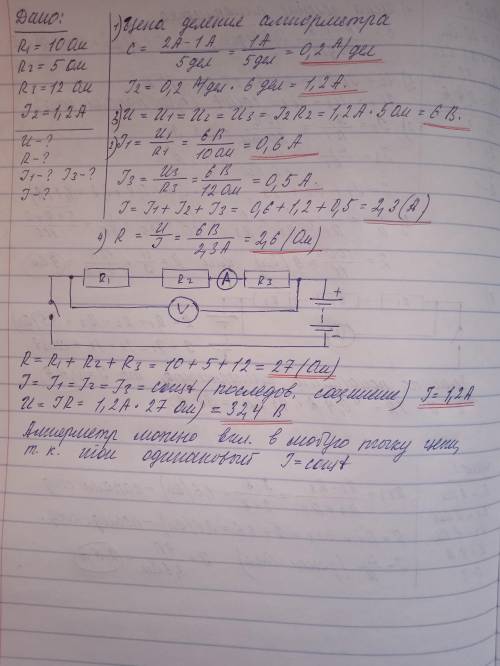 Дано:
R1 = 10 Ом
R2 = 5 Ом
R3 = 12 Ом
I2 = 1,2 А
U - ?
R - ?
I1 - ? I3 - ?
I - ?
1) Цена деление амперметра
C = 2А - 1А / 5 дел = 1А / 5 дел = 0,2 А/дел
I2 = 0,2 А/дел · 6 дел = 1,2 А.
2) U = U1 = U2 = U3 = I2 R2 = 1,2 А · 5 Ом = 6 В.
3) I1 = U1 / R1 = 6 В / 10 Ом = 0,6 А
I3 = U3 / R3 = 6 В / 12 Ом = 0,5 А.
I = I1 + I2 + I3 = 0,6 + 1,2 + 0,5 = 2,3 (А)
4) R = U / I = 6 В / 2,3 А = 2,6 (Ом)
R1 R2 A R3 +
V -
R = R1 + R2 + R3 = 10 + 5 + 12 = 27 (Ом)
I = I1 = I2 = I3 = const (последов. соединение) I = 1,2 А
U = IR = 1,2 А · 27 Ом) = 32,4 В
Амперметр можно вкл. в любую точку цепи,
т. к. ток одинаковый I = const